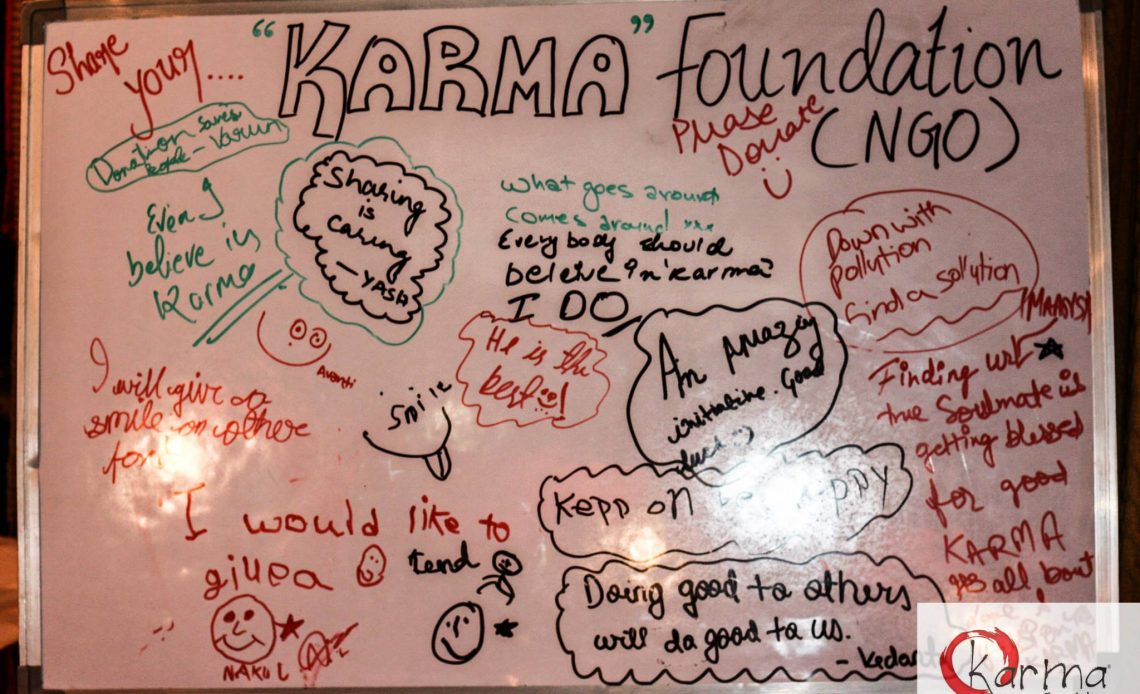 Share
your....
"KARMA" foundation
(NGO)
Please
Donate
Donation saves
people - Varun
Even I
believe in
Karma
Sharing
is
Caring
- YASH
What goes around
comes around
Everybody should
beleive in 'karma'
I DO
Down with
pollution
find a sollution
(MAANYSA)
Avanti
He is the
best !
Smile
An Amazing
initiative. Good
luck :)
I will give a
smile on other
for
Finding
true Soulmate is
getting blessed
for good
KARMA
all bout
Kepp on be happy
I would like to
give a
tend
NAKUL
Doing good to others
will do good to us.
- Vedant
Karma